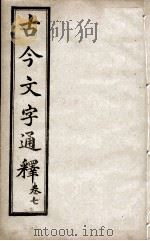 古今文字通釋卷七